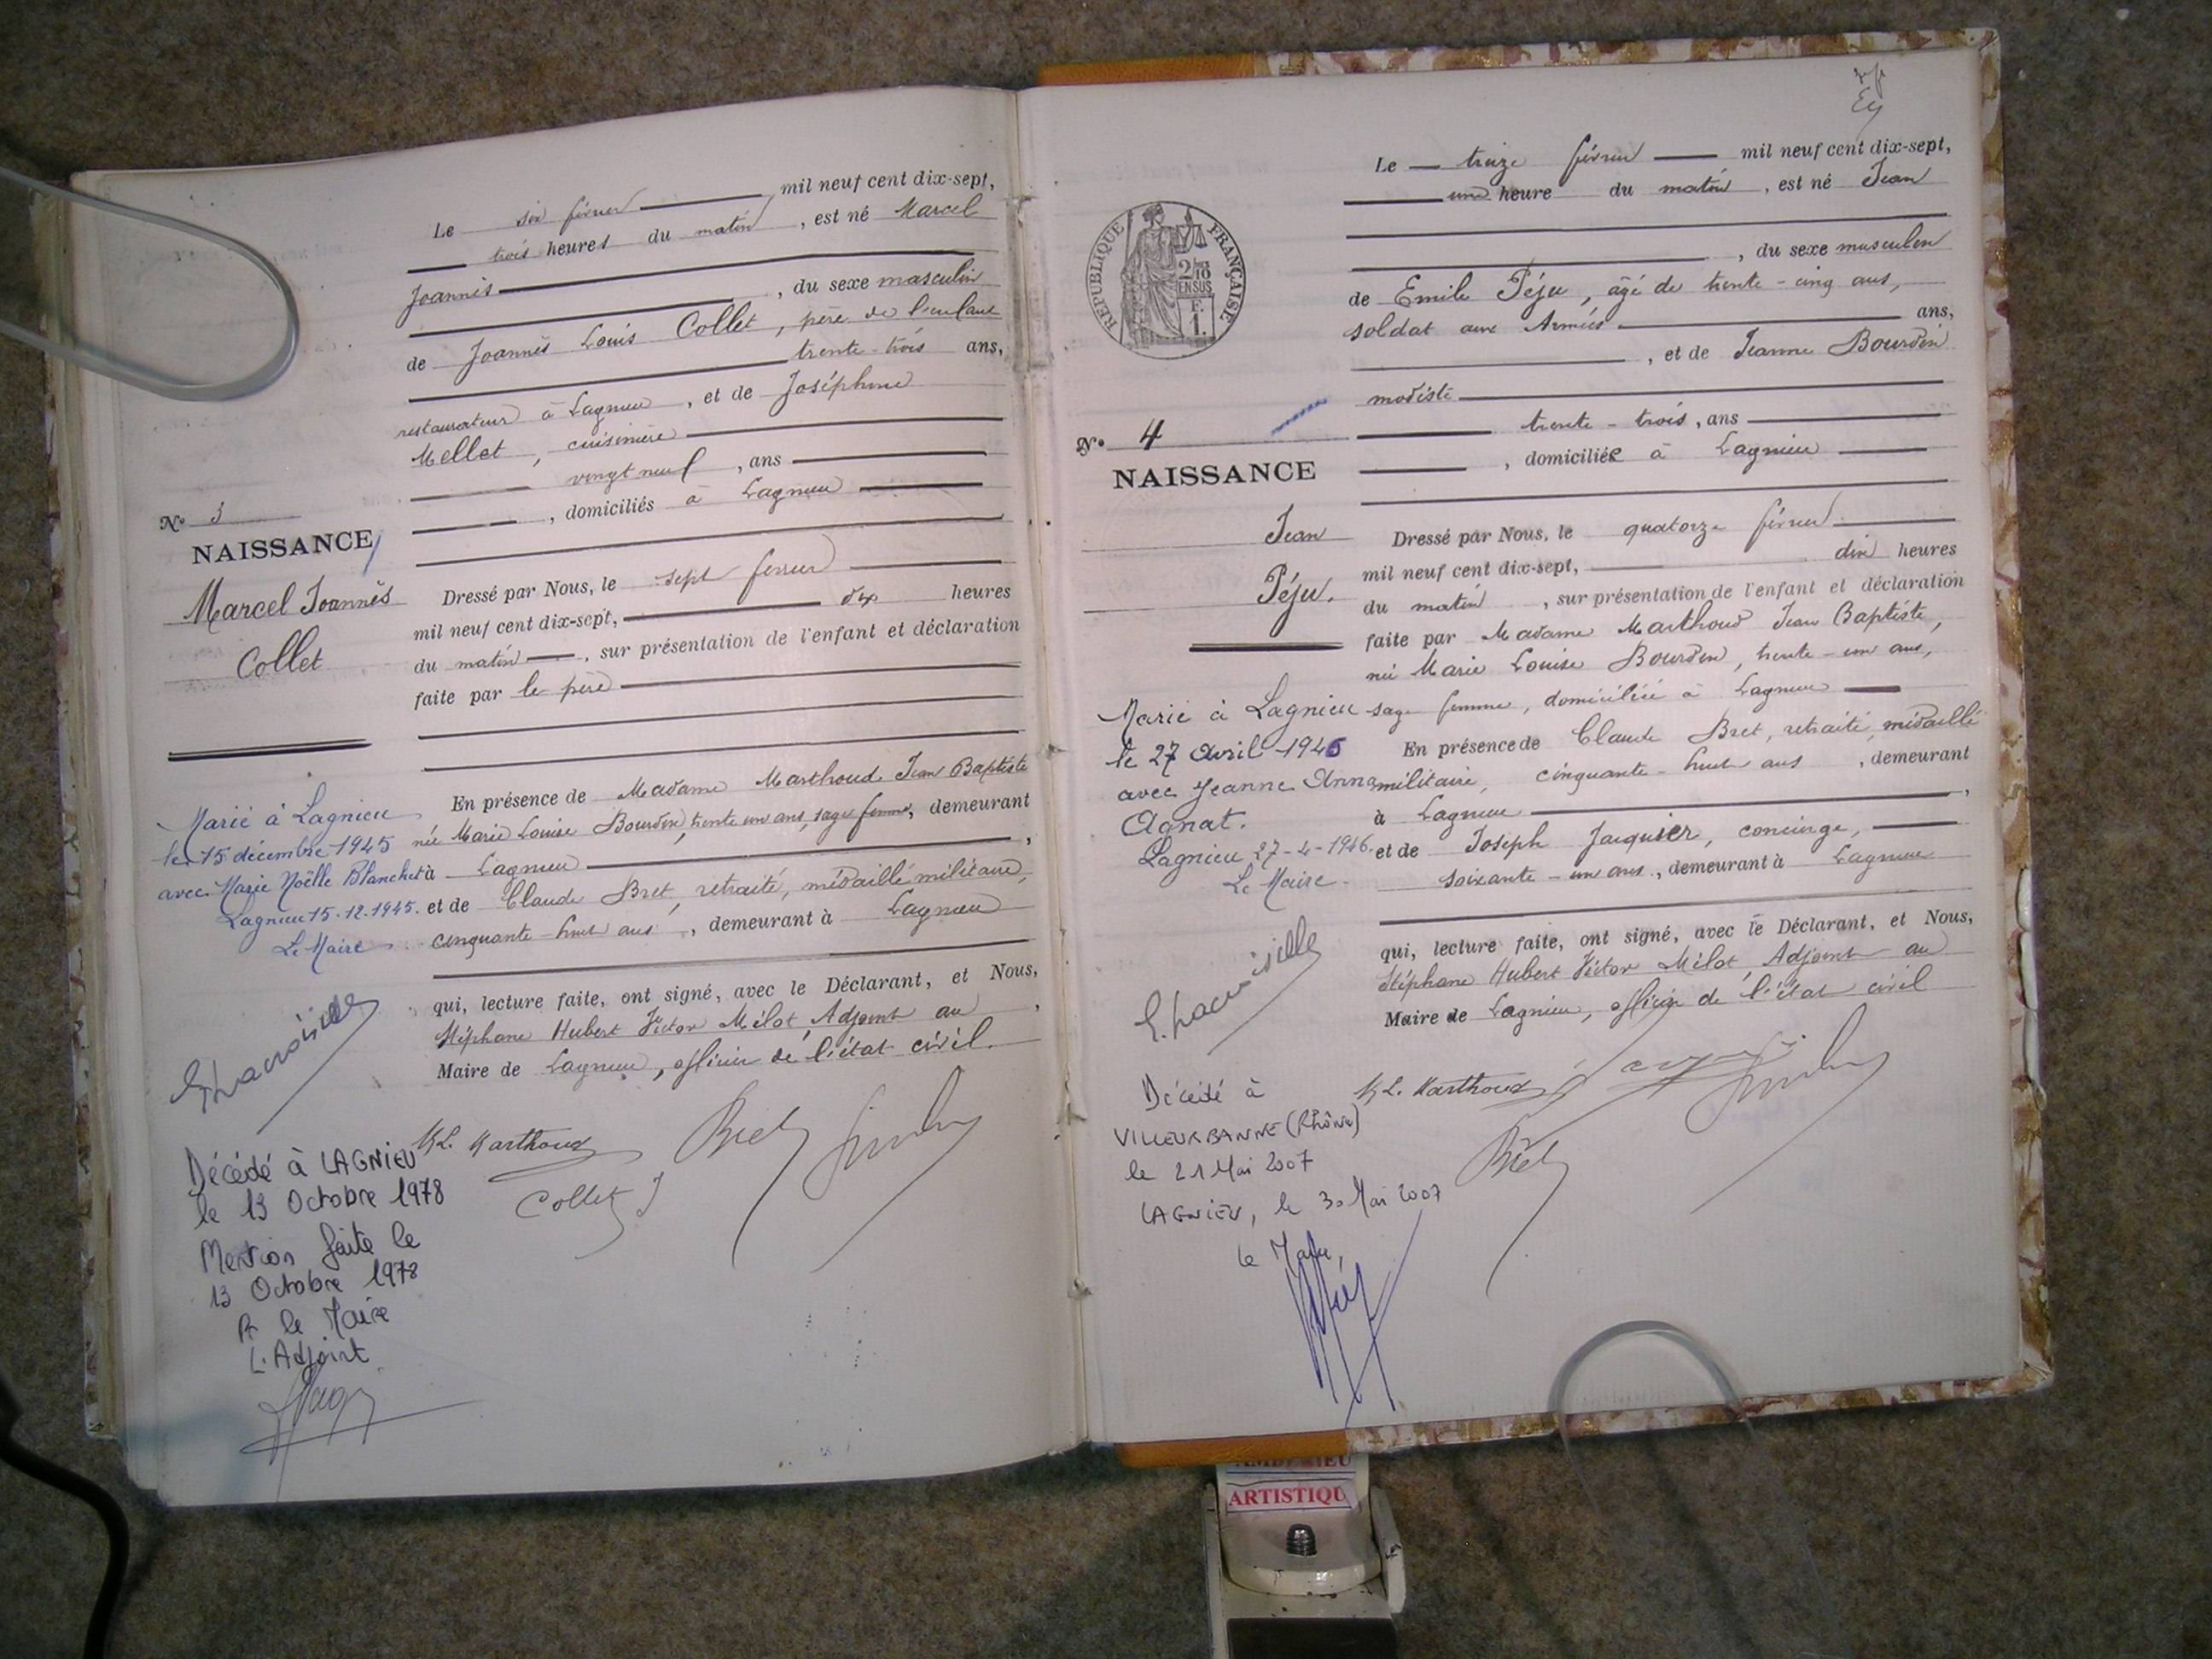 Le six février mil neuf cent dix-sept,
trois heures du matin, est né Marcel
Joannès, du sexe masculin
de Joannès Louis Collet, père de l'enfant
trente-trois ans,
restaurateur à Lagnieu, et de Joséphine
Mellet, cuisinière
vingt neuf, ans
, domiciliés à Lagnieu
N° 3
NAISSANCE
Marcel Joannès
Collet
Dressé par Nous, le sept février
mil neuf cent dix-sept, dix heures
du matin, sur présentation de l'enfant et déclaration
faite par le père
En présence de Madame Marthoud Jean Baptiste
née Marie Louise Bourdin, trente un ans, sage femme, demeurant
à Lagnieu,
et de Claude Bret, retraité, médaillé militaire,
cinquante-huit ans, demeurant à Lagnieu
qui, lecture faite, ont signé, avec le Déclarant, et Nous,
Stéphane Hubert Victor Milot, Adjoint au
Maire de Lagnieu, officier de l'état civil.
Marié à Lagnieu
le 15 décembre 1945
avec Marie Noëlle Blanchet
Lagnieu 15.12.1945.
Le Maire
M.L. Marthoud
Collet J
Bret
Décédé à LAGNIEU
le 13 Octobre 1978
Mention faite le
13 Octobre 1978
Pr le Maire
L'Adjoint
Le treize février mil neuf cent dix-sept,
une heure du matin, est né Jean
, du sexe masculin
de Emile Péju, âgé de trente-cinq ans,
soldat aux Armées ans,
, et de Jeanne Bourdin
modiste
trente-trois, ans
, domiciliée à Lagnieu
REPUBLIQUE FRANÇAISE
2/10
EN SUS
F.
1.
N° 4
NAISSANCE
Jean
Péju.
Dressé par Nous, le quatorze février
mil neuf cent dix-sept, dix heures
du matin, sur présentation de l'enfant et déclaration
faite par Madame Marthoud Jean Baptiste,
née Marie Louise Bourdin, trente-un ans,
sage femme, domiciliée à Lagnieu
En présence de Claude Bret, retraité, médaillé
militaire, cinquante-huit ans, demeurant
à Lagnieu,
et de Joseph Jacquier, concierge,
soixante-un ans, demeurant à Lagnieu
qui, lecture faite, ont signé, avec le Déclarant, et Nous,
Stéphane Hubert Victor Milot, Adjoint au
Maire de Lagnieu, officier de l'état civil
Marié à Lagnieu
le 27 Avril 1946
avec Jeanne Anna
Agnat.
Lagnieu 27-4-1946.
Le Maire
M.L. Marthoud
Bret
Décédé à
VILLEURBANNE (Rhône)
le 21 Mai 2007
LAGNIEU, le 30 Mai 2007
Le Maire,
ARTISTIQU